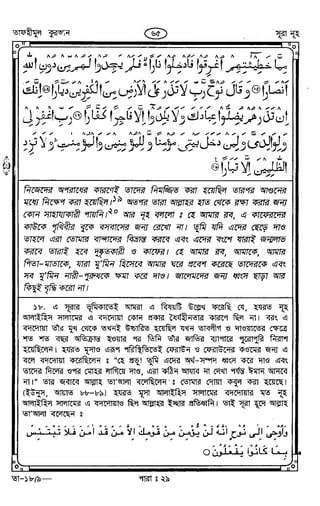 তাফহীমুল কুরআন
৬৫
সূরা নূহ
مِمَّا خَطِيْئٰتِهِمْ اُغْرِقُوْا فَاُدْخِلُوْا نَارًا ۙ فَلَمْ يَجِدُوْا لَهُمْ مِّنْ دُوْنِ اللّٰهِ
اَنْصَارًا ﴿۲۵﴾ وَقَالَ نُوْحٌ رَّبِّ لَا تَذَرْ عَلَى الْاَرْضِ مِنَ الْكٰفِرِيْنَ دَيَّارًا ﴿۲۶﴾ اِنَّكَ
اِنْ تَذَرْهُمْ يُضِلُّوْا عِبَادَكَ وَلَا يَلِدُوْٓا اِلَّا فَاجِرًا كَفَّارًا ﴿۲۷﴾ رَبِّ اغْفِرْ لِيْ
وَلِوَالِدَيَّ وَلِمَنْ دَخَلَ بَيْتِيَ مُؤْمِنًا وَّلِلْمُؤْمِنِيْنَ وَالْمُؤْمِنٰتِ ؕ وَلَا تَزِدِ
الظّٰلِمِيْنَ اِلَّا تَبَارًا ﴿۲۸﴾
নিজেদের অপরাধের কারণেই তাদের নিমজ্জিত করা হয়েছিল তারপর আগুনের
মধ্যে নিক্ষেপ করা হয়েছিল।১৯ অতপর তারা আল্লাহর হাত থেকে রক্ষা করার জন্য
কোন সাহায্যকারী পায়নি।২০ আর নূহ বললো : হে আমার রব, এ কাফেরদের
কাউকে পৃথিবীর বুকে বসবাসের জন্য রেখো না। তুমি যদি এদের ছেড়ে দাও
তাহলে এরা তোমার বান্দাদের বিভ্রান্ত করবে এবং এদের বংশে যারাই জন্মলাভ
করবে তারাই হবে দুষ্কৃতকারী ও কাফের। হে আমার রব, আমাকে, আমার
পিতা-মাতাকে, যারা মু'মিন হিসেবে আমার ঘরে প্রবেশ করেছে তাদেরকে এবং
সব মু'মিন নারী-পুরুষকে ক্ষমা করে দাও। জালেমদের জন্য ধ্বংস ছাড়া আর
কিছুই বৃদ্ধি করো না।
১৮. এ সূরার ভূমিকাতেই আমরা এ বিষয়টি উল্লেখ করেছি যে, হযরত নূহ
আলাইহিস সালামের এ বদদোয়া কোন প্রকার ধৈর্যহীনতার কারণে ছিল না। বরং এ
বদদোয়া তাঁর মুখ থেকে তখনই উচ্চারিত হয়েছিল যখন তাবলীগ ও দাওয়াতের ক্ষেত্রে
শত শত বছর অতিক্রান্ত হওয়ার পর তিনি তাঁর জাতির ব্যাপারে পুরোপুরি নিরাশ
হয়েছিলেন। হযরত মূসাও এরূপ পরিস্থিতিতেই ফেরাউন ও ফেরাউনের কওমের জন্য এ
বলে বদদোয়া করেছিলেন : "হে প্রভু! তুমি এদের অর্থ-সম্পদ ধ্বংস করে দাও এবং
তাদের দিলের ওপর মোহর লাগিয়ে দাও, এরা কঠিন আযাব না দেখা পর্যন্ত ঈমান আনবে
না।" তার জবাবে আল্লাহ তা'আলা বলেছিলেন : তোমার দোয়া কবুল করা হয়েছে।
(ইউনুস, আয়াত ৮৮-৮৯)। হযরত মূসা আলাইহিস সালামের বদদোয়ার মত নূহ
আলাইহিস সালামের এ বদদোয়াও ছিল আল্লাহর ইচ্ছার প্রতিধ্বনি। তাই সূরা হূদে আল্লাহ
তা'আলা বলেছেন :
وَاُوْحِيَ اِلٰى نُوْحٍ اَنَّهٗ لَنْ يُّؤْمِنَ مِنْ قَوْمِكَ اِلَّا مَنْ قَدْ اٰمَنَ فَلَا تَبْتَئِسْ
بِمَا كَانُوْا يَفْعَلُوْنَ ۝
তা-১৮/৯—
পারা : ২৯